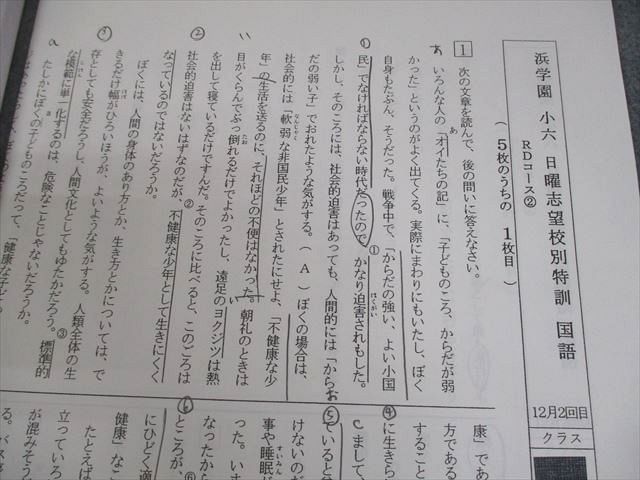 浜学園 小六 日曜志望校別特訓 国語
RDコース②
（ 5枚のうちの 1枚目 ）
12月2回目
クラス
1 次の文章を読んで、後の問いに答えなさい。
いろんな人の「オイたちの記」に、「子どものころ、からだが弱
かった」というのがよく出てくる。実際にまわりにもいたし、ぼく
自身もたぶん、そうだった。戦争中で、「からだの強い、よい小国
民」でなければならない時代だったので、かなり迫害されもした。
はくがい
しかし、そのころには、社会的迫害はあっても、人間的には「から
だの弱い子」でおれたような気がする。（ A ）ぼくの場合は、
社会的には「軟弱な非国民少年」とされたにせよ、「不健康な少
なんじゃく
年」の生活を送るのに、それほどの不便はなかった。朝礼のときは
目がくらんでぶっ倒れるだけでよかったし、遠足のヨクジツは熱
たお
を出して寝ているだけですんだ。そのころに比べると、このごろは
社会的迫害はないはずなのだが、不健康な少年として生きにくく
なっているのではないだろうか。
ぼくには、人間の身体のあり方とか、生き方とかについては、で
きるだけ幅がひろいほうが、よいような気がする。人類全体の生
はば
存としても安全だろうし、人間文化としてもゆたかだろう。標準的
な模範に単一化するのは、危険なことじゃないだろうか。
たしかにぼくの子どものころだって、「健康な子ども
康」であ
方である
すること
に生きら
まして、
ているとき
けないのだ
事や睡眠が
すいみん
った。いま
なったから
ところが、
にひどく適
健康」なこ
たとえば
立っている
が混みそう
る。バスを